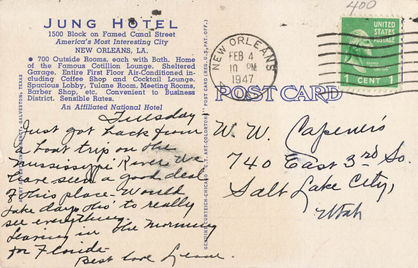 JUNG HOTEL
1500 Block on Famed Canal Street
America's Most Interesting City
NEW ORLEANS, LA.
● 700 Outside Rooms. each with Bath. Home
of the Famous Cotillion Lounge. Sheltered
Garage. Entire First Floor Air-Conditioned in-
cluding Coffee Shop and Cocktail Lounge.
Spacious Lobby, Tulane Room, Meeting Rooms,
Barber Shop, etc. Convenient to Business
District. Sensible Rates.
An Affiliated National Hotel
Tuesday
Just got back from
a boat trip on the
Mississippi River. We
have seen a good deal
of this place. Would
take days tho' to really
see everything.
Leaving in the morning
for Florida.
Best love
400
NEW ORLEANS
FEB 4
10 PM
1947
UNITED STATES
POSTAGE
1 CENT 1
POST CARD
W. W.
740 East 3rd So.
Salt Lake City,
Utah